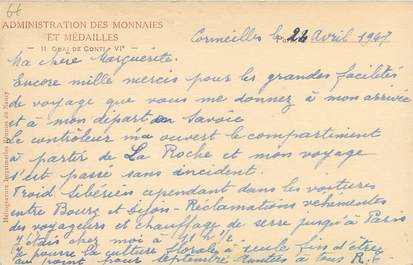 66
ADMINISTRATION DES MONNAIES
ET MÉDAILLES
11 QUAI DE CONTI VIe
Cormeilles le 24 Avril 1947
Ma chère Marguerite.
Encore mille mercis pour les grandes facilités
de voyage que vous me donnez à mon arrivée
et à mon départ en Savoie
Le contrôleur m'a ouvert le compartiment
à partir de La Roche et mon voyage
s'est passé sans incident.
Froid sibérien cependant dans les voitures
entre Bourg et Dijon - Réclamations véhémentes
des voyageurs et chauffage de serre jusqu'à Paris
J'étais chez moi à
Je pourre la culture florale à seule fin d'être
au point pour septembre. à tous
Héliogravure